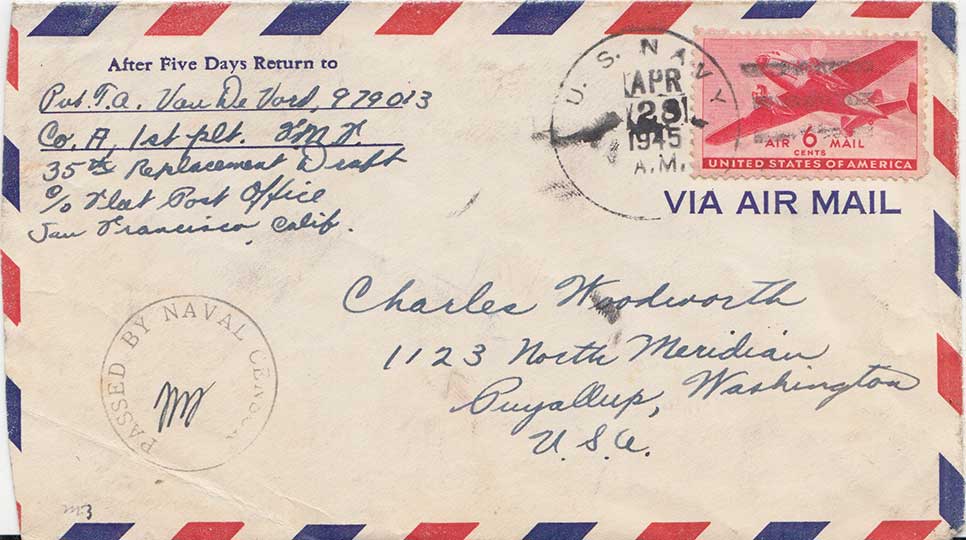 After Five Days Return to
Pvt. T.A. Van De Vord, 979013
Co. A, 1st plt. F M F.
35th Replacement Draft
c/o Fleet Post Office
San Francisco, Calif.
U. S. NAVY
APR
28
1945
A.M.
AIR 6 MAIL
CENTS
UNITED STATES OF AMERICA
VIA AIR MAIL
Charles Woodworth
1123 North Meridian
Puyallup, Washington
U.S.A.
PASSED BY NAVAL CENSOR